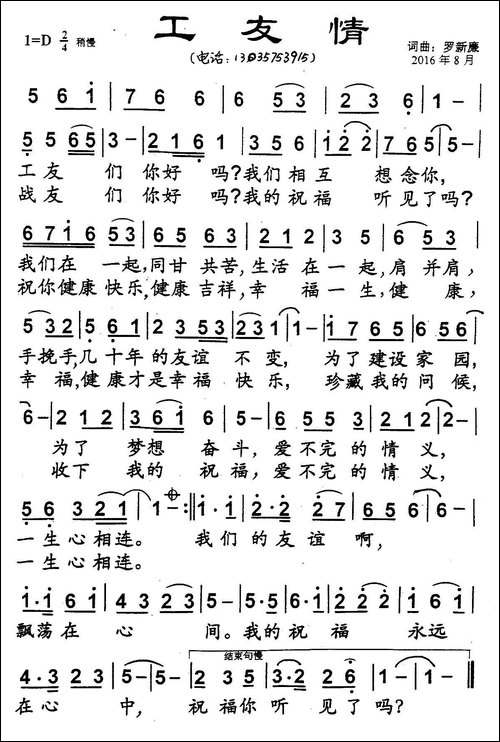 工友情
1=D 2/4 稍慢
(电话:13035753915)
词曲:罗新廉
2016年8月
5 6 1 | 7 6 6 | 3 5 3 | 2 3 6 | 1 - |
5 5 6 5 | 3 - | 2 1 6 1 | 3 5 6 | 1 2 2 | 7 6 5 | 5 - |
工友 们 你好 吗?我们相互 想念你,
战友 们 你好 吗?我的祝福 听见了吗?
6 7 1 6 5 3 | 6 5 6 3 | 2 1 2 | 3 5 | 6 5 3 |
我们在 一起,同甘 共苦,生活 在一起,肩 并肩,
祝你健康 快乐,健康 吉祥,幸 福一生,健 康,
5 3 2 | 5 6 1 | 2 3 5 3 | 2 3 1 | 1 - | 1 7 6 5 | 6 5 6 |
手挽手,几十年的友谊 不变, 为了建设家 园,
幸 福,健康才是幸福 快乐, 珍藏我的问 候,
6 - | 2 1 2 | 3 6 1 | 5 - | 6 5 5 | 2 1 2 | 2 - |
为了 梦想 奋斗,爱不完的情义,
收下 我的 祝福,爱不完的情义,
5 6 | 3 2 2 1 | 1 - :| 1·1 | 2·2 | 2 7 6 5 | 6 - |
一生心相连。 我们的友谊 啊,
一生心相连。
1·1 6 1 | 4 3 2 3 | 5 - | 5·5 | 6·1 | 2 2 2 | 1 6 1 |
飘荡在 心 间。我的祝 福 永远
结束句慢
4·3 2 3 | 5 - | 5 - | 2 3 5 | 3·2 2 6 | 1 - | 1 - |
在心 中, 祝福你听 见了吗?